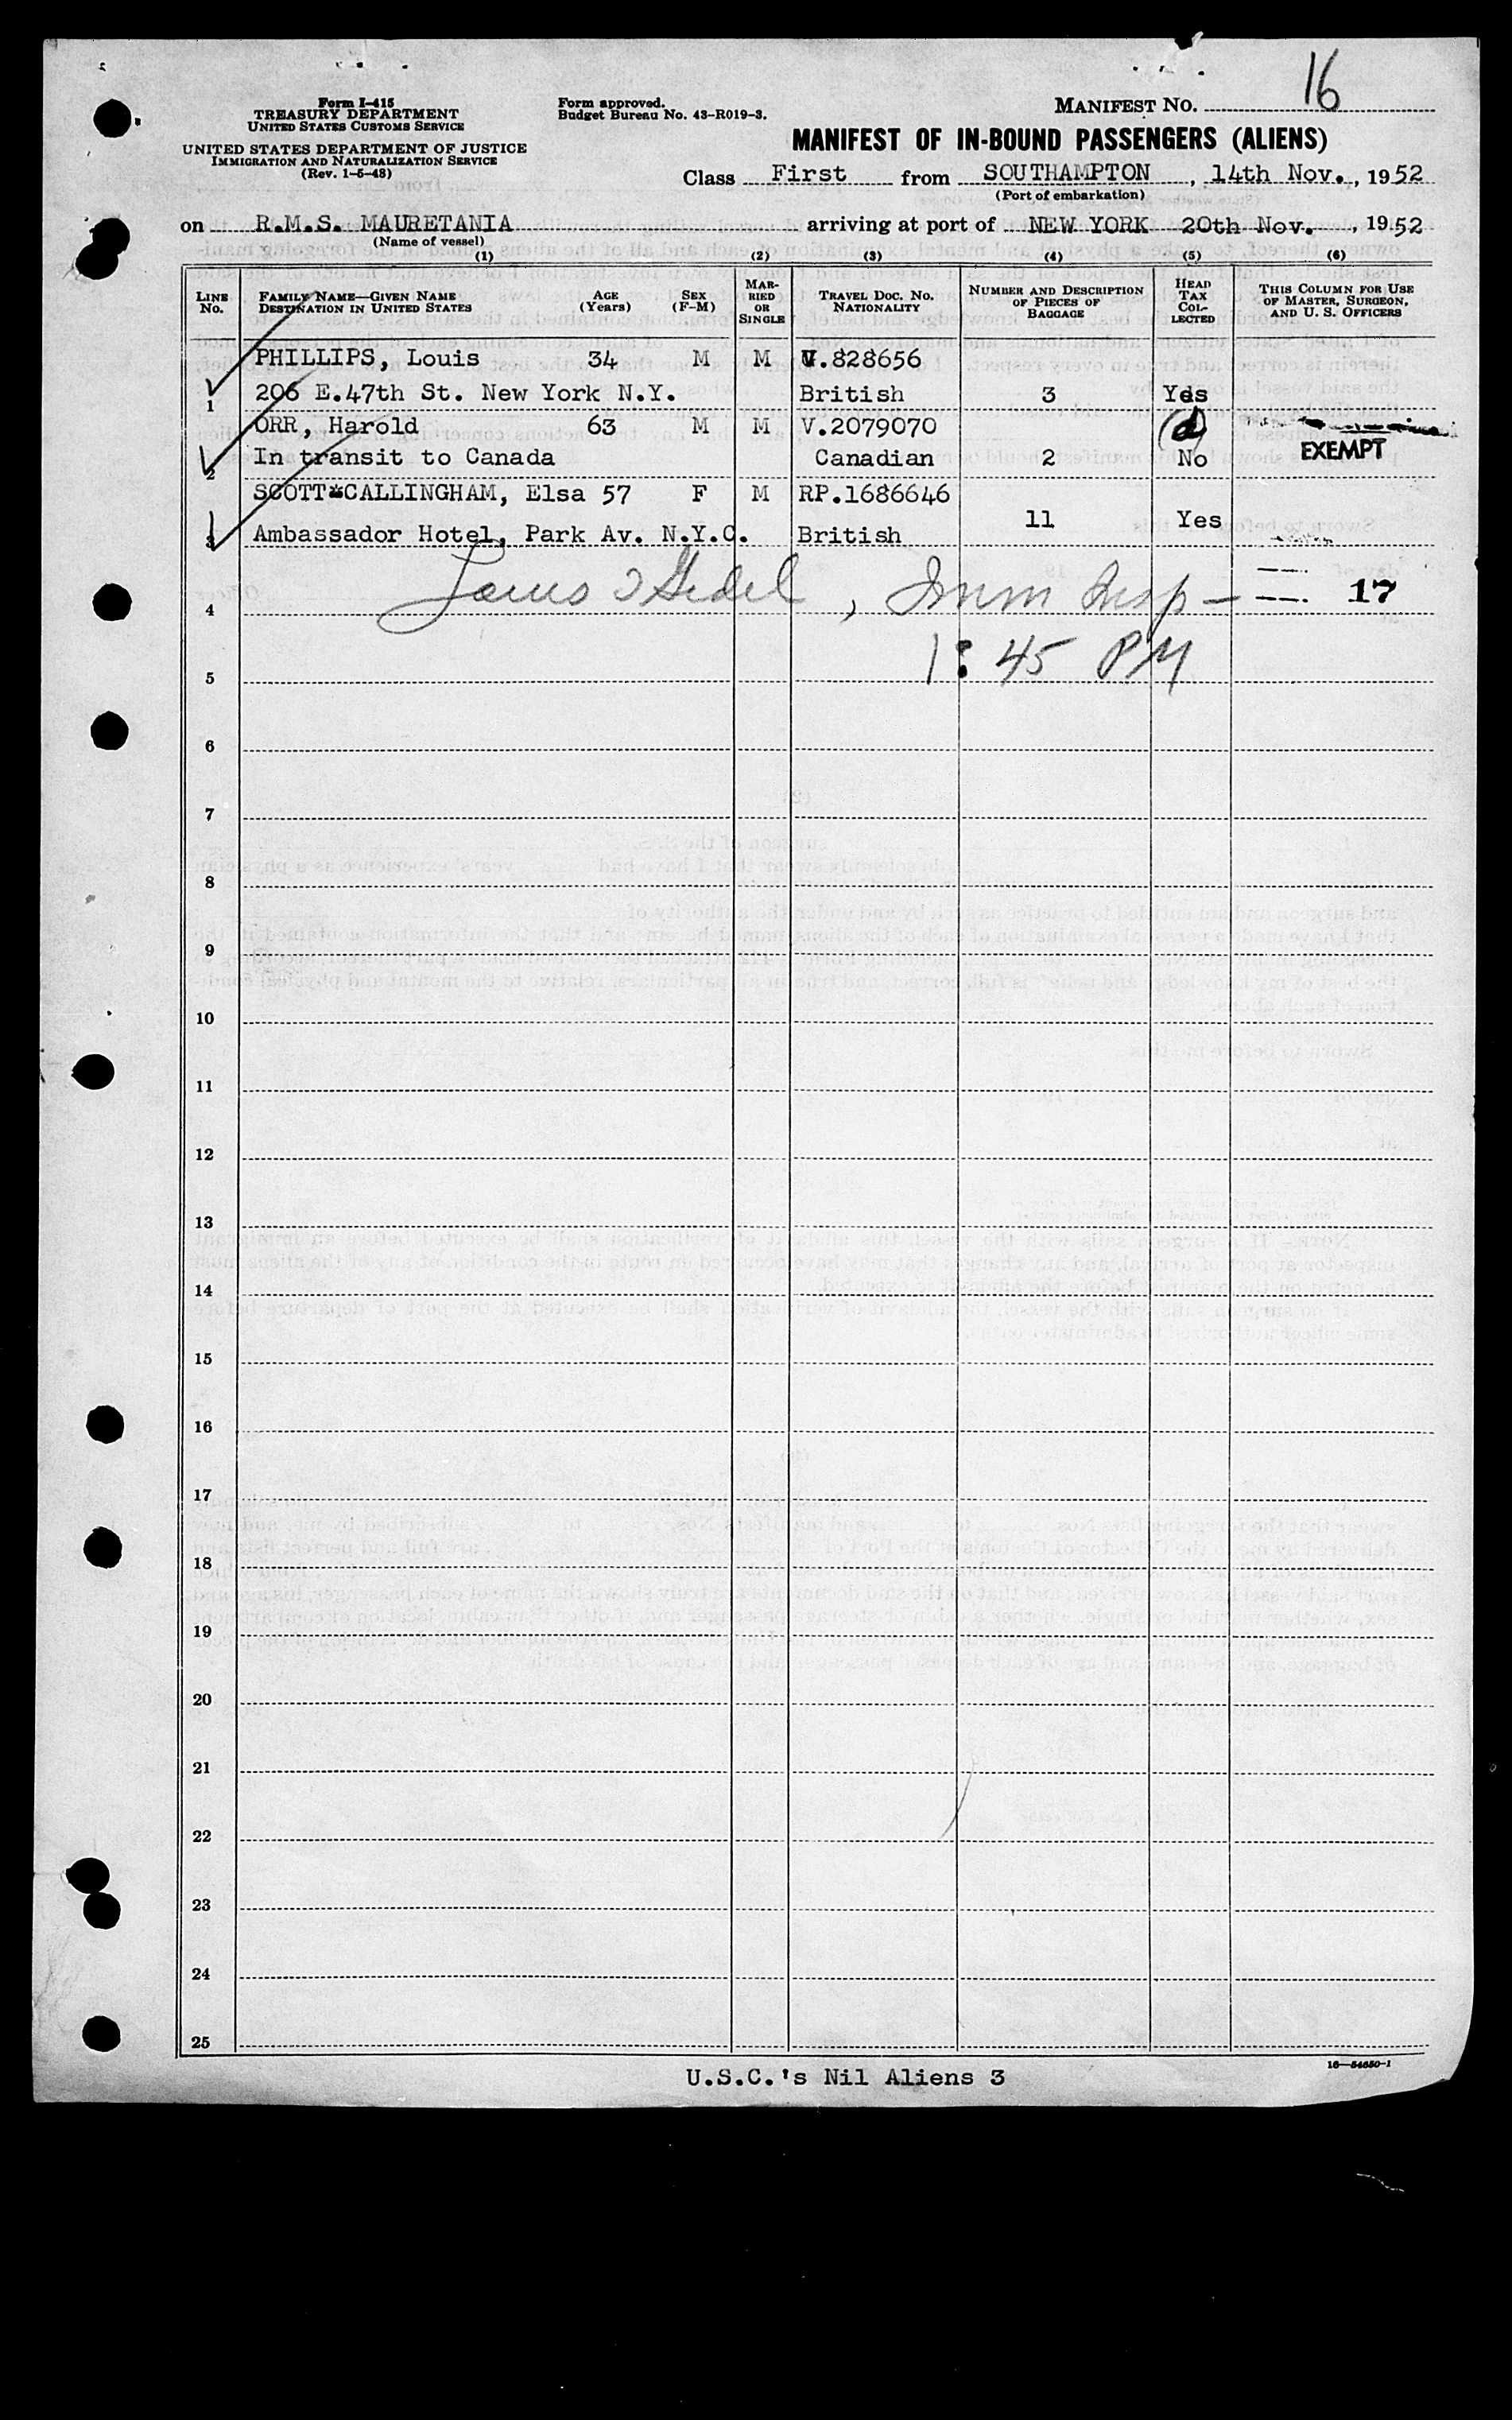 Form I-415
TREASURY DEPARTMENT
UNITED STATES CUSTOMS SERVICE
UNITED STATES DEPARTMENT OF JUSTICE
IMMIGRATION AND NATURALIZATION SERVICE
(Rev. 1-5-48)
Form approved.
Budget Bureau No. 43-R019-3.
MANIFEST NO. 16
MANIFEST OF IN-BOUND PASSENGERS (ALIENS)
Class First from SOUTHAMPTON, 14th Nov., 1952
(Port of embarkation)
on R.M.S. MAURETANIA arriving at port of NEW YORK 20th Nov., 1952
(Name of vessel)
(1) (2) (3) (4) (5) (6)
LINE No. FAMILY NAME—GIVEN NAME DESTINATION IN UNITED STATES AGE (Years) SEX (F-M) MARRIED OR SINGLE TRAVEL DOC. NO. NATIONALITY NUMBER AND DESCRIPTION OF PIECES OF BAGGAGE HEAD TAX COLLECTED THIS COLUMN FOR USE OF MASTER, SURGEON, AND U. S. OFFICERS
PHILLIPS, Louis 34 M M V.828656
1 206 E.47th St. New York N.Y. British 3 Yes
ORR, Harold 63 M M V.2079070 (d)
2 In transit to Canada Canadian 2 No EXEMPT
SCOTT-CALLINGHAM, Elsa 57 F M RP.1686646
3 Ambassador Hotel, Park Av. N.Y.C. British 11 Yes
4 Louis , Imm Insp — 17
1:45 PM
5
6
7
8
9
10
11
12
13
14
15
16
17
18
19
20
21
22
23
24
25
16—54650-1
U.S.C.'s Nil Aliens 3